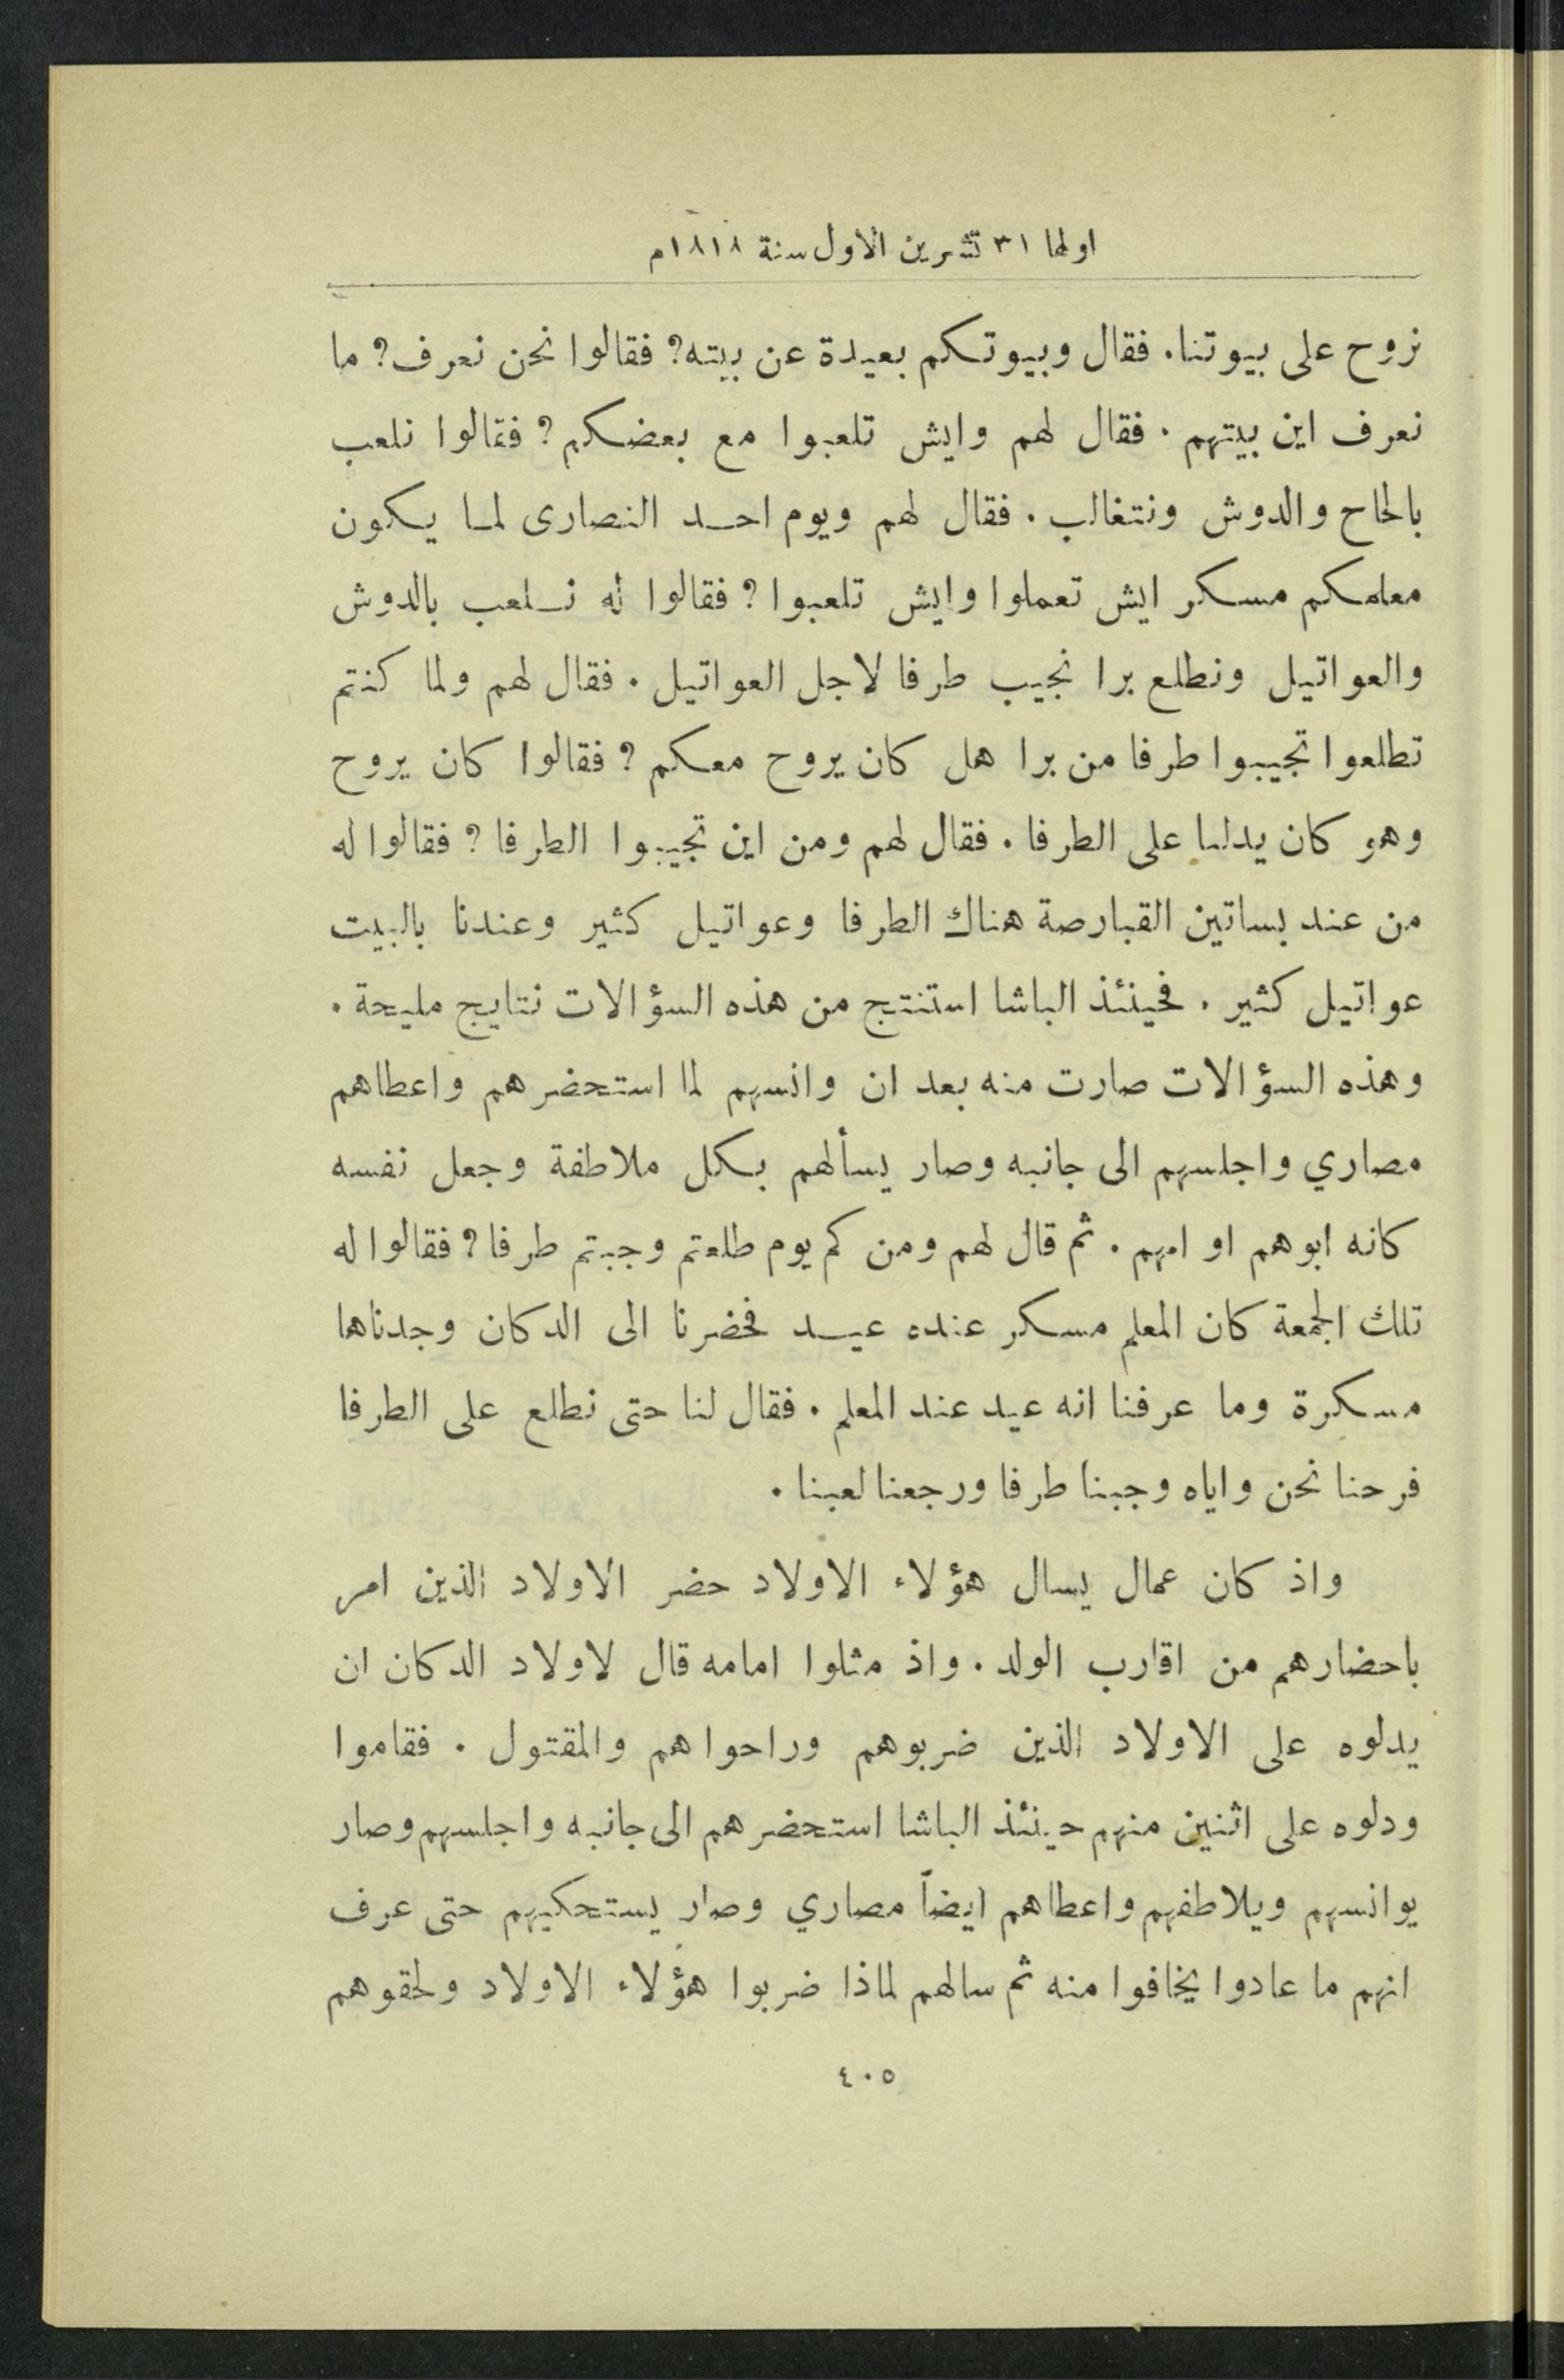 اولها ٣١ تشرين الاول سنة ١٨١٨م
نروح على بيوتنا. فقال وبيوتكم بعيدة عن بيته? فقالوا نحن نعرف? ما
نعرف اين بيتهم. فقال لهم وايش تلعبوا مع بعضكم? فقالوا نلعب
بالحاح والدوش ونتغالب. فقال لهم ويوم احد النصارى لما يكون
معلمكم مسكر ايش تعملوا وايش تلعبوا? فقالوا له نلعب بالدوش
والعواتيل ونطلع برا نجيب طرفا لاجل العواتيل. فقال لهم ولما كنتم
تطلعوا تجيبوا طرفا من برا هل كان يروح معكم? فقالوا كان يروح
وهو كان يدلنا على الطرفا. فقال لهم ومن اين تجيبوا الطرفا? فقالوا له
من عند بساتين القبارصة هناك الطرفا وعواتيل كثير وعندنا بالبيت
عواتيل كثير. فحينئذ الباشا استنتج من هذه السؤالات نتايج مليحة.
وهذه السؤالات صارت منه بعد ان وانسهم لما استحضرهم واعطاهم
مصاري واجلسهم الى جانبه وصار يسألهم بكل ملاطفة وجعل نفسه
كانه ابوهم او امهم. ثم قال لهم ومن كم يوم طلعتم وجبتم طرفا? فقالوا له
تلك الجمعة كان المعلم مسكر عنده عيد فحضرنا الى الدكان وجدناها
مسكرة وما عرفنا انه عيد عند المعلم. فقال لنا حتى نطلع على الطرفا
فرحنا نحن واياه وجبنا طرفا ورجعنا لعبنا.
واذ كان عمال يسال هؤلاء الاولاد حضر الاولاد الذين امر
باحضارهم من اقارب الولد. واذ مثلوا امامه قال لاولاد الدكان ان
يدلوه على الاولاد الذين ضربوهم وراحوا هم والمقتول. فقاموا
ودلوه على اثنين منهم حينئذ الباشا استحضرهم الى جانبه واجلسهم وصار
يوانسهم ويلاطفهم واعطاهم ايضاً مصاري وصار يستحكيهم حتى عرف
انهم ما عادوا يخافوا منه ثم سالهم لماذا ضربوا هؤلاء الاولاد ولحقوهم
٤٠٥